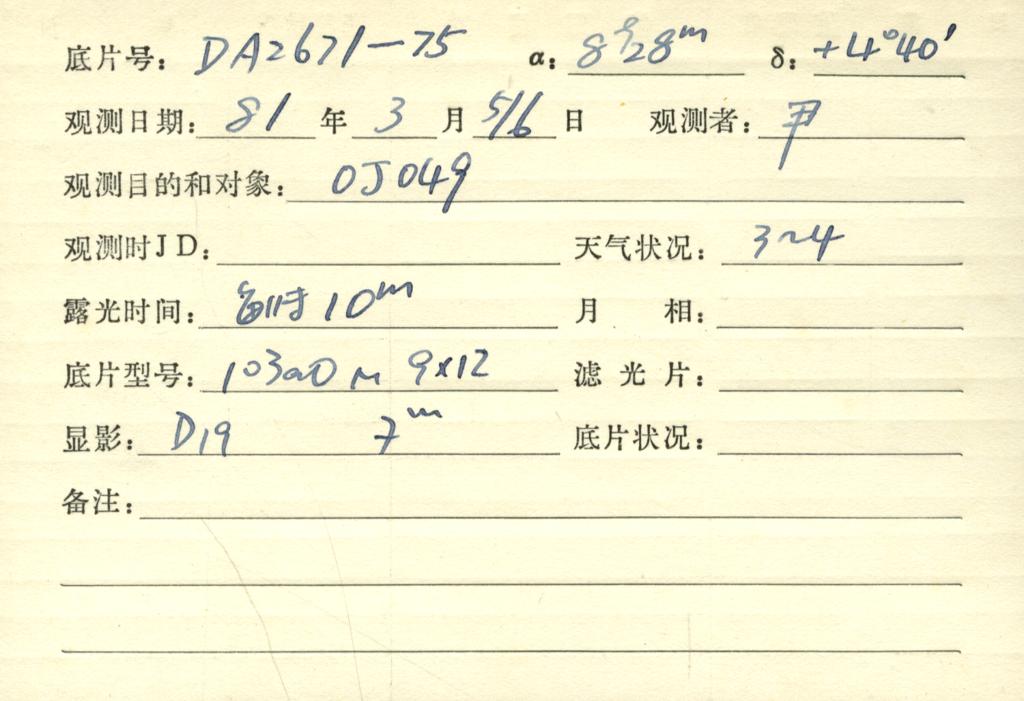 底片号: DA2671-75 α: 8ʰ28ᵐ δ: +4°40′
观测日期: 81 年 3 月 5/6 日 观测者:
观测目的和对象: OJ049
观测时JD: 天气状况: 3~4
露光时间: 10ᵐ 月 相:
底片型号: 103aO 9x12 滤 光 片:
显影: D19 7ᵐ 底片状况:
备注: